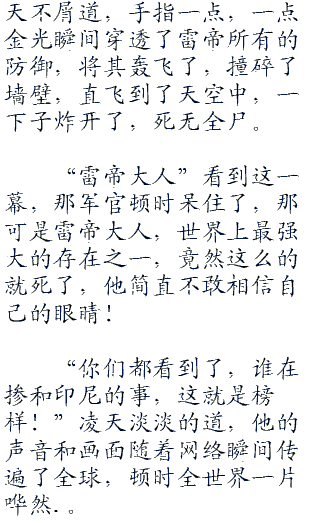 天不屑道，手指一点，一点
金光瞬间穿透了雷帝所有的
防御，将其轰飞了，撞碎了
墙壁，直飞到了天空中，一
下子炸开了，死无全尸。
“雷帝大人”看到这一
幕，那军官顿时呆住了，那
可是雷帝大人，世界上最强
大的存在之一，竟然这么的
就死了，他简直不敢相信自
己的眼睛！
“你们都看到了，谁在
掺和印尼的事，这就是榜
样！”凌天淡淡的道，他的
声音和画面随着网络瞬间传
遍了全球，顿时全世界一片
哗然.。